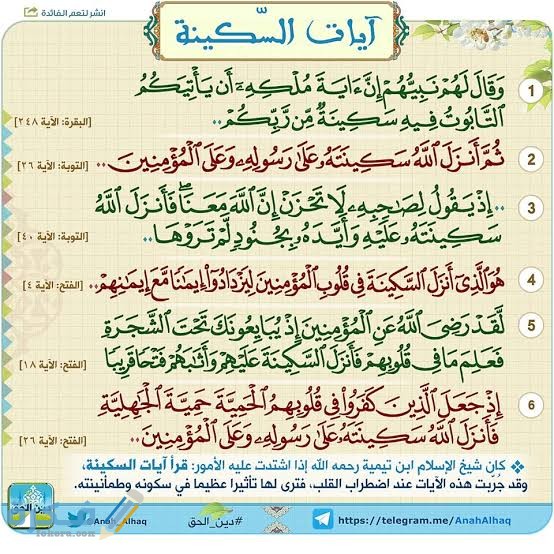 انشر لتعم الفائدة
آيات السّكينة
1
وَقَالَ لَهُمْ نَبِيُّهُمْ إِنَّ ءَايَةَ مُلْكِهِۦٓ أَن يَأْتِيَكُمُ
التَّابُوتُ فِيهِ سَكِينَةٌ مِّن رَّبِّكُمْ..
[البقرة: الآية ٢٤٨]
2
ثُمَّ أَنزَلَ اللَّهُ سَكِينَتَهُۥ عَلَىٰ رَسُولِهِۦ وَعَلَى الْمُؤْمِنِينَ..
[التوبة: الآية ٢٦]
3
..إِذْ يَقُولُ لِصَاحِبِهِۦ لَا تَحْزَنْ إِنَّ اللَّهَ مَعَنَا ۖ فَأَنزَلَ اللَّهُ
سَكِينَتَهُۥ عَلَيْهِ وَأَيَّدَهُۥ بِجُنُودٍ لَّمْ تَرَوْهَا..
[التوبة: الآية ٤٠]
4
هُوَ الَّذِىٓ أَنزَلَ السَّكِينَةَ فِى قُلُوبِ الْمُؤْمِنِينَ لِيَزْدَادُوٓا۟ إِيمَٰنًا مَّعَ إِيمَٰنِهِمْ..
[الفتح: الآية ٤]
5
لَّقَدْ رَضِىَ اللَّهُ عَنِ الْمُؤْمِنِينَ إِذْ يُبَايِعُونَكَ تَحْتَ الشَّجَرَةِ
فَعَلِمَ مَا فِى قُلُوبِهِمْ فَأَنزَلَ السَّكِينَةَ عَلَيْهِمْ وَأَثَٰبَهُمْ فَتْحًا قَرِيبًا
[الفتح: الآية ١٨]
6
إِذْ جَعَلَ الَّذِينَ كَفَرُوا۟ فِى قُلُوبِهِمُ الْحَمِيَّةَ حَمِيَّةَ الْجَٰهِلِيَّةِ
فَأَنزَلَ اللَّهُ سَكِينَتَهُۥ عَلَىٰ رَسُولِهِۦ وَعَلَى الْمُؤْمِنِينَ..
[الفتح: الآية ٢٦]
كان شيخ الإسلام ابن تيمية رحمه الله إذا اشتدت عليه الأمور: قرأ آيات السكينة،
وقد جُرّبت هذه الآيات عند اضطراب القلب، فترى لها تأثيرا عظيما في سكونه وطمأنينته.
https://telegram.me/AnahAlhaq
#دين_الحق
@Anah_Alhaq
دين الحق